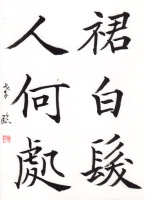 裙白髮
人何處